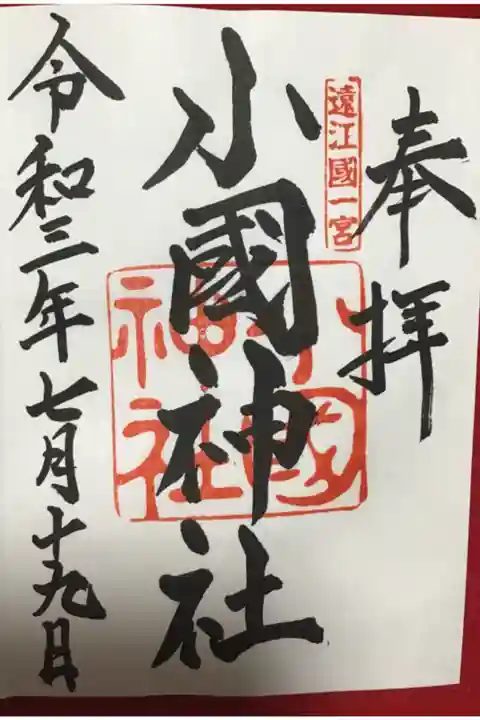 奉拝
遠江國一宮
小國神社
小國神社
令和三年七月十九日